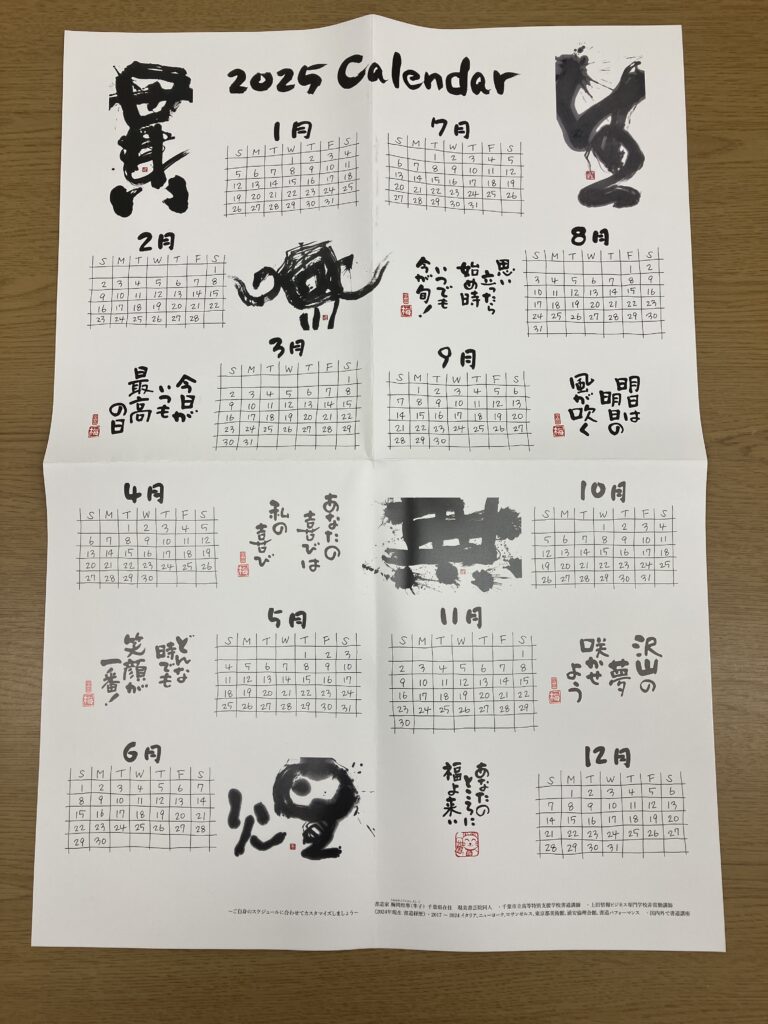 2025 Calendar
貫
1月
S M T W T F S
1 2 3 4
5 6 7 8 9 10 11
12 13 14 15 16 17 18
19 20 21 22 23 24 25
26 27 28 29 30 31
2月
S M T W T F S
1
2 3 4 5 6 7 8
9 10 11 12 13 14 15
16 17 18 19 20 21 22
23 24 25 26 27 28
3月
S M T W T F S
1
2 3 4 5 6 7 8
9 10 11 12 13 14 15
16 17 18 19 20 21 22
23 24 25 26 27 28 29
30 31
今日が
いつも
最高
の日
梅
4月
S M T W T F S
1 2 3 4 5
6 7 8 9 10 11 12
13 14 15 16 17 18 19
20 21 22 23 24 25 26
27 28 29 30
あなたの
喜びは
私の
喜び
梅
5月
S M T W T F S
1 2 3
4 5 6 7 8 9 10
11 12 13 14 15 16 17
18 19 20 21 22 23 24
25 26 27 28 29 30 31
どんな
時でも
笑顔が
一番!
梅
6月
S M T W T F S
1 2 3 4 5 6 7
8 9 10 11 12 13 14
15 16 17 18 19 20 21
22 23 24 25 26 27 28
29 30
生
7月
S M T W T F S
1 2 3 4 5
6 7 8 9 10 11 12
13 14 15 16 17 18 19
20 21 22 23 24 25 26
27 28 29 30 31
思い
立ったら
始め時
いつでも
今が旬!
梅
8月
S M T W T F S
1 2
3 4 5 6 7 8 9
10 11 12 13 14 15 16
17 18 19 20 21 22 23
24 25 26 27 28 29 30
31
9月
S M T W T F S
1 2 3 4 5 6
7 8 9 10 11 12 13
14 15 16 17 18 19 20
21 22 23 24 25 26 27
28 29 30
明日は
明日の
風が吹く
梅
10月
S M T W T F S
1 2 3 4
5 6 7 8 9 10 11
12 13 14 15 16 17 18
19 20 21 22 23 24 25
26 27 28 29 30 31
11月
S M T W T F S
1
2 3 4 5 6 7 8
9 10 11 12 13 14 15
16 17 18 19 20 21 22
23 24 25 26 27 28 29
30
沢山の
夢
咲かせ
よう
梅
あなたの
ところに
福よ来い
12月
S M T W T F S
1 2 3 4 5 6
7 8 9 10 11 12 13
14 15 16 17 18 19 20
21 22 23 24 25 26 27
28 29 30 31
〜ご自身のスケジュールに合わせてカスタマイズしましょう〜
書道家 千葉県在住 現美書芸院同人 ・千葉市立高等特別支援学校書道講師 ・上田情報ビジネス専門学校非常勤講師
(2024年現在 書道経歴)・2017 〜 2024 イタリア,ニューヨーク,ロサンゼルス,東京都美術館,浦安倫理会館,書道パフォーマンス ・国内外で書道講座